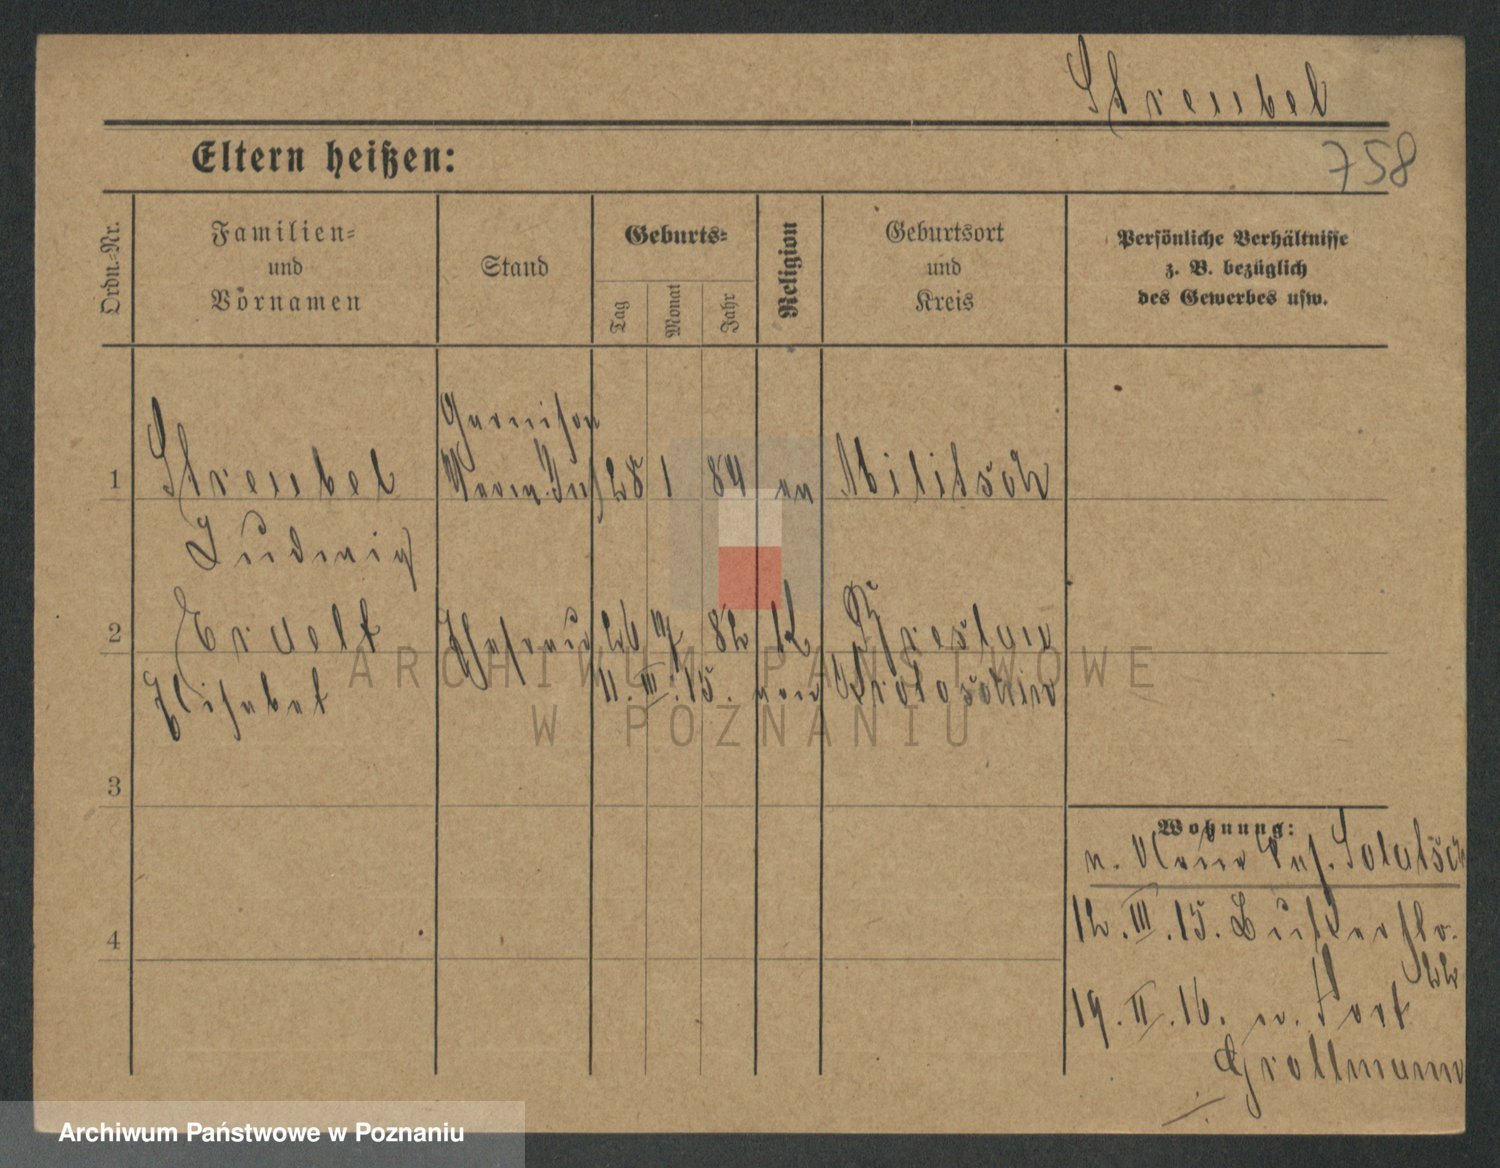 Streubel
758
Eltern heißen:
Ordn.-Nr.
Familien-
und
Vornamen
Stand
Geburts-
Tag
Monat
Jahr
Religion
Geburtsort
und
Kreis
Persönliche Verhältnisse
z. B. bezüglich
des Gewerbes usw.
Garnison
1 Streubel Verw. Insp 28 1 84 ev Militsch
Ludwig
2 Erdelt Ehefrau 26 82 K Breslau
Elisabet 11. III. 15. von Krotoschin
3
4
Wohnung:
n. Solatsch
12. III. 15. Luther str.
22
19. II. 16. n. Fort
Grollmann
ARCHIWUM PAŃSTWOWE
W POZNANIU
Archiwum Państwowe w Poznaniu